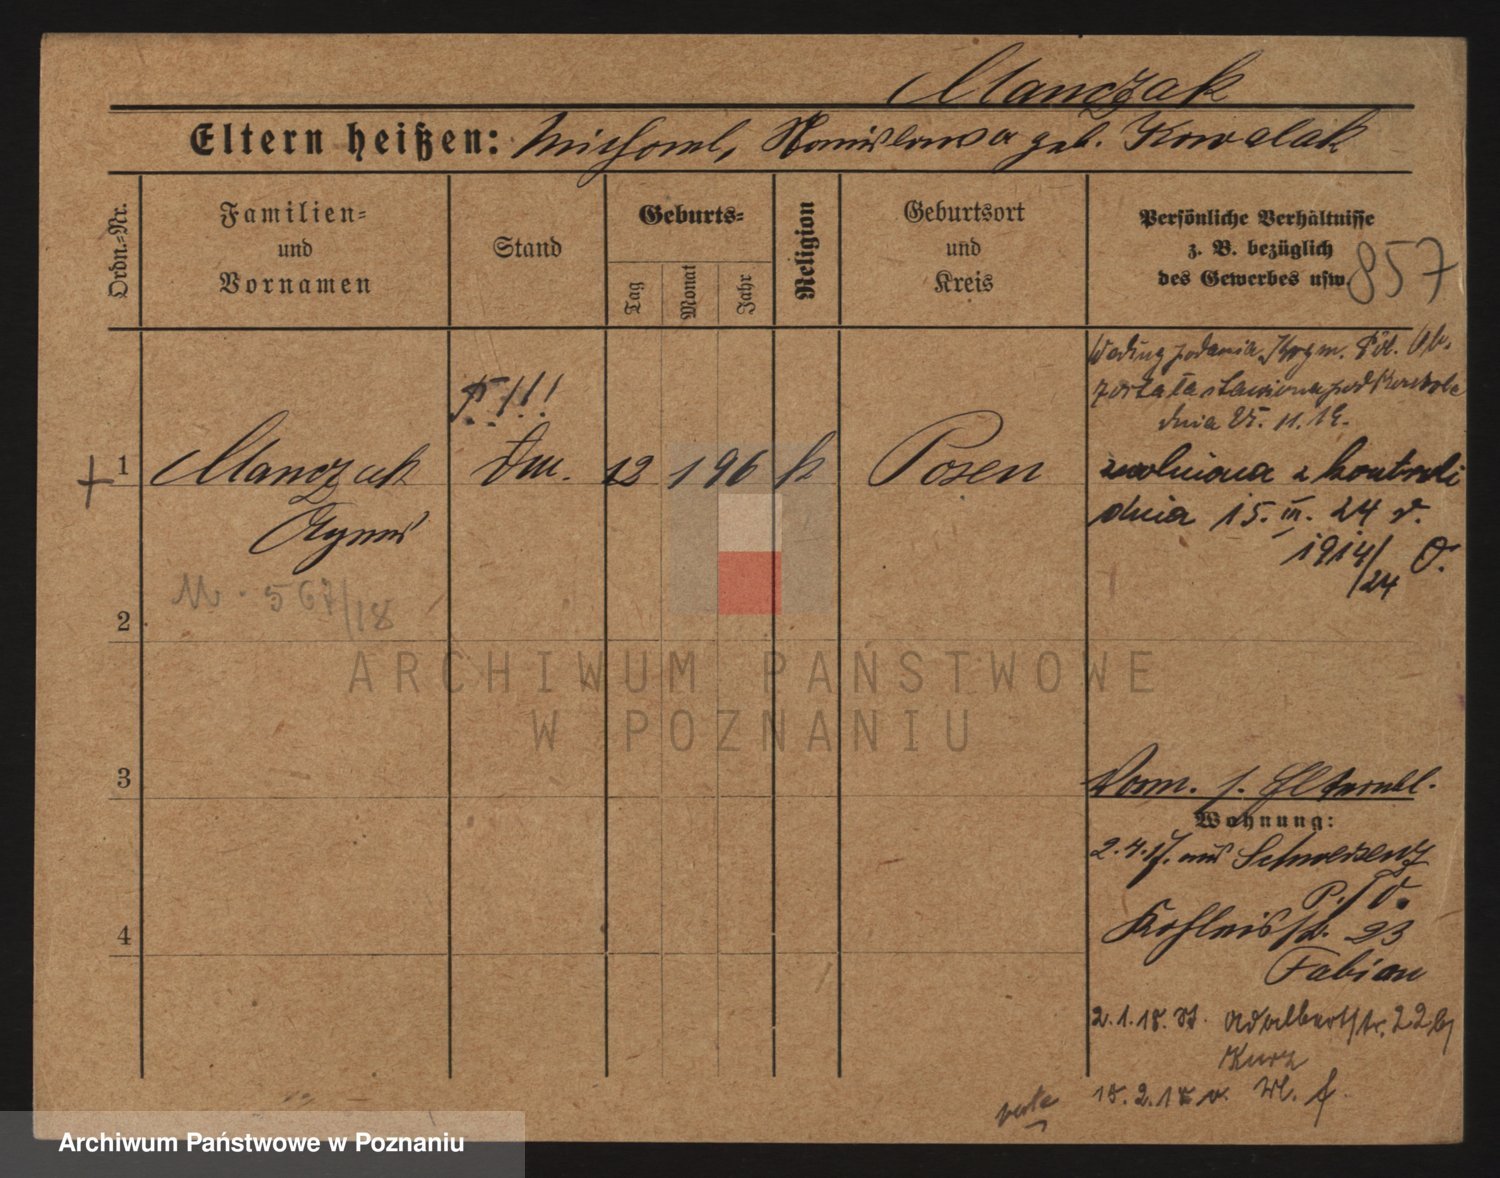 Manczak
Eltern heißen: Michael, Stanislawa geb. Kowalak
Ordn.-Nr.
Familien-
und
Vornamen
Stand
Geburts-
Tag
Monat
Jahr
Religion
Geburtsort
und
Kreis
Persönliche Verhältnisse
z. B. bezüglich
des Gewerbes usw.
857
Według podania
została pod
dnia 25. 11. 19.
!!!
+ 1 Manczak 12 1 96 k Posen
zwolniona z kontroli
dnia 15. III. 24 r.
1914/24 O.
M. 567/18
2
3
4
Vorm. s. Elternbl.
Wohnung:
2.4.17. aus Schwersenz
23
Fabian
2.1.18. Adalbertstr. 22 b/
Kurz
18.2.18 v.
ARCHIWUM PAŃSTWOWE
W POZNANIU
Archiwum Państwowe w Poznaniu